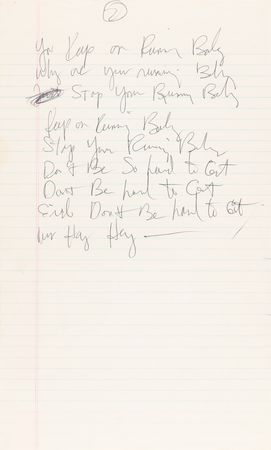 2
You Keep on Runnin Baby
Why are your running Baby
Stop Your Runnin Baby
Keep on Runnin Baby
Stop Your Runnin Baby
Don't Be So hard to Get
Don't Be hard to Get
Girl Don't Be hard to Get
Hey Hey